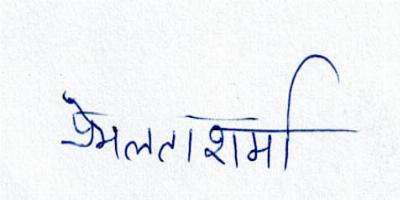 प्रेमलता शर्मा